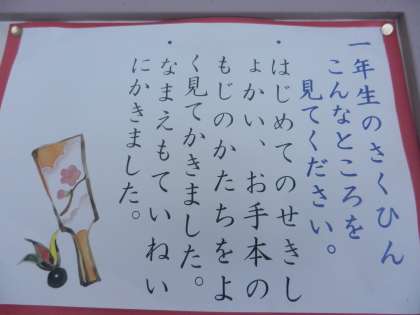 一年生のさくひん
こんなところを
見てください。
・はじめてのせきし
ょかい、お手本の
もじのかたちをよ
く見てかきました。
・なまえもていねい
にかきました。